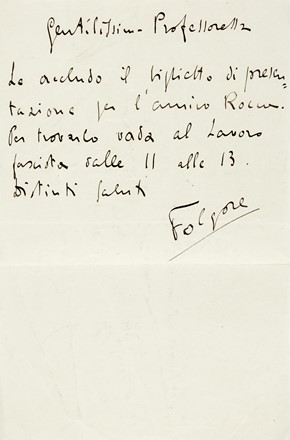 Gentilissima Professoressa
Le accludo il biglietto di presen-
tazione per l'amico Rocca.
Per trovarlo vada al Lavoro
fascista dalle 11 alle 13.
Distinti saluti
Folgore